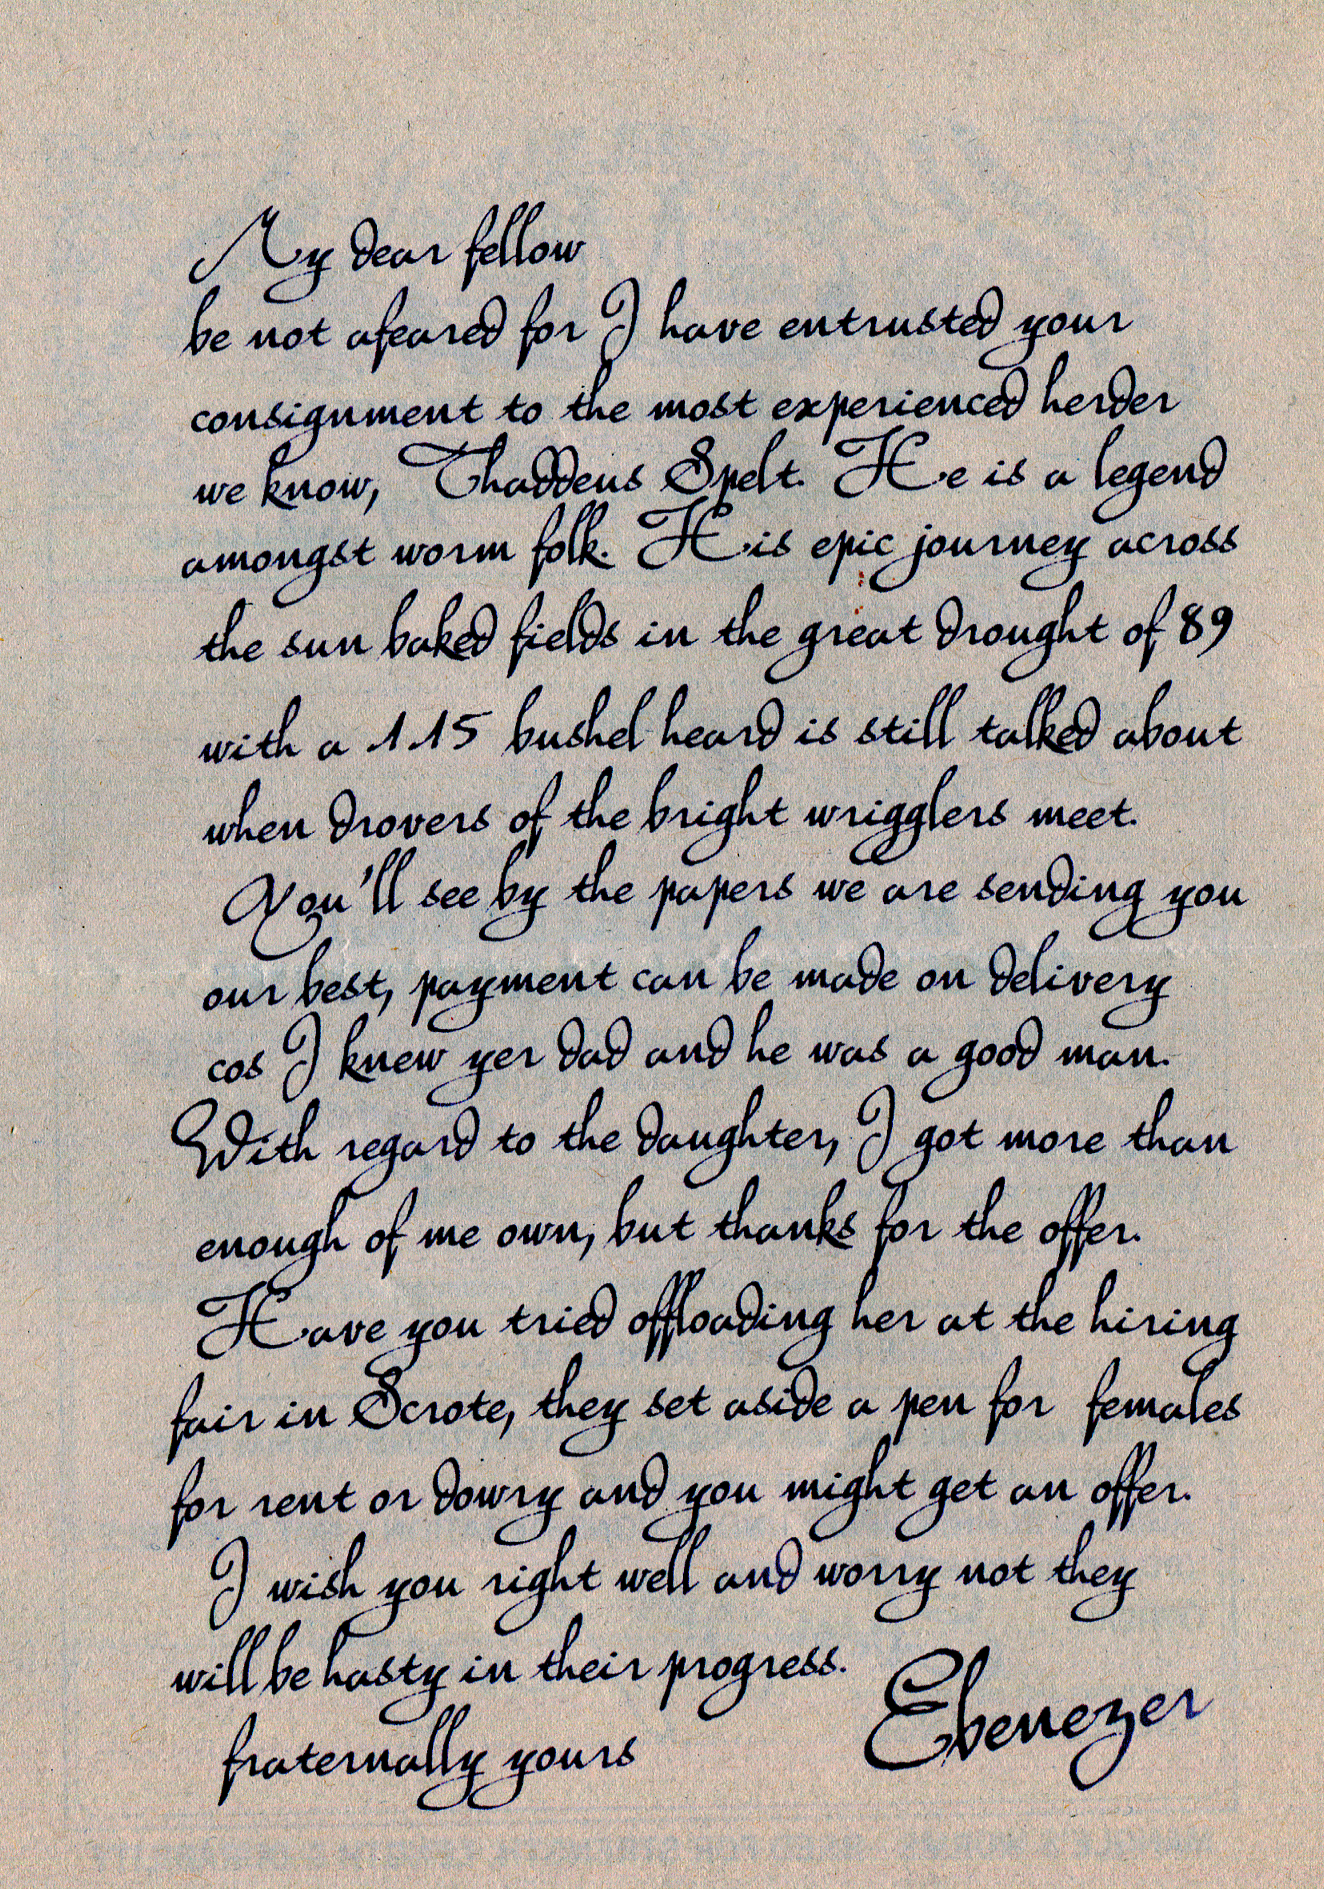 My dear fellow
be not afeared for I have entrusted your
consignment to the most experienced herder
we know, Thaddeus Spelt. He is a legend
amongst worm folk. His epic journey across
the sun baked fields in the great drought of 89
with a 115 bushel heard is still talked about
when drovers of the bright wrigglers meet.
You'll see by the papers we are sending you
our best, payment can be made on delivery
cos I knew yer dad and he was a good man.
With regard to the daughter, I got more than
enough of me own, but thanks for the offer.
Have you tried offloading her at the hiring
fair in Scrote, they set aside a pen for females
for rent or dowry and you might get an offer.
I wish you right well and worry not they
will be hasty in their progress.
fraternally yours
Ebenezer